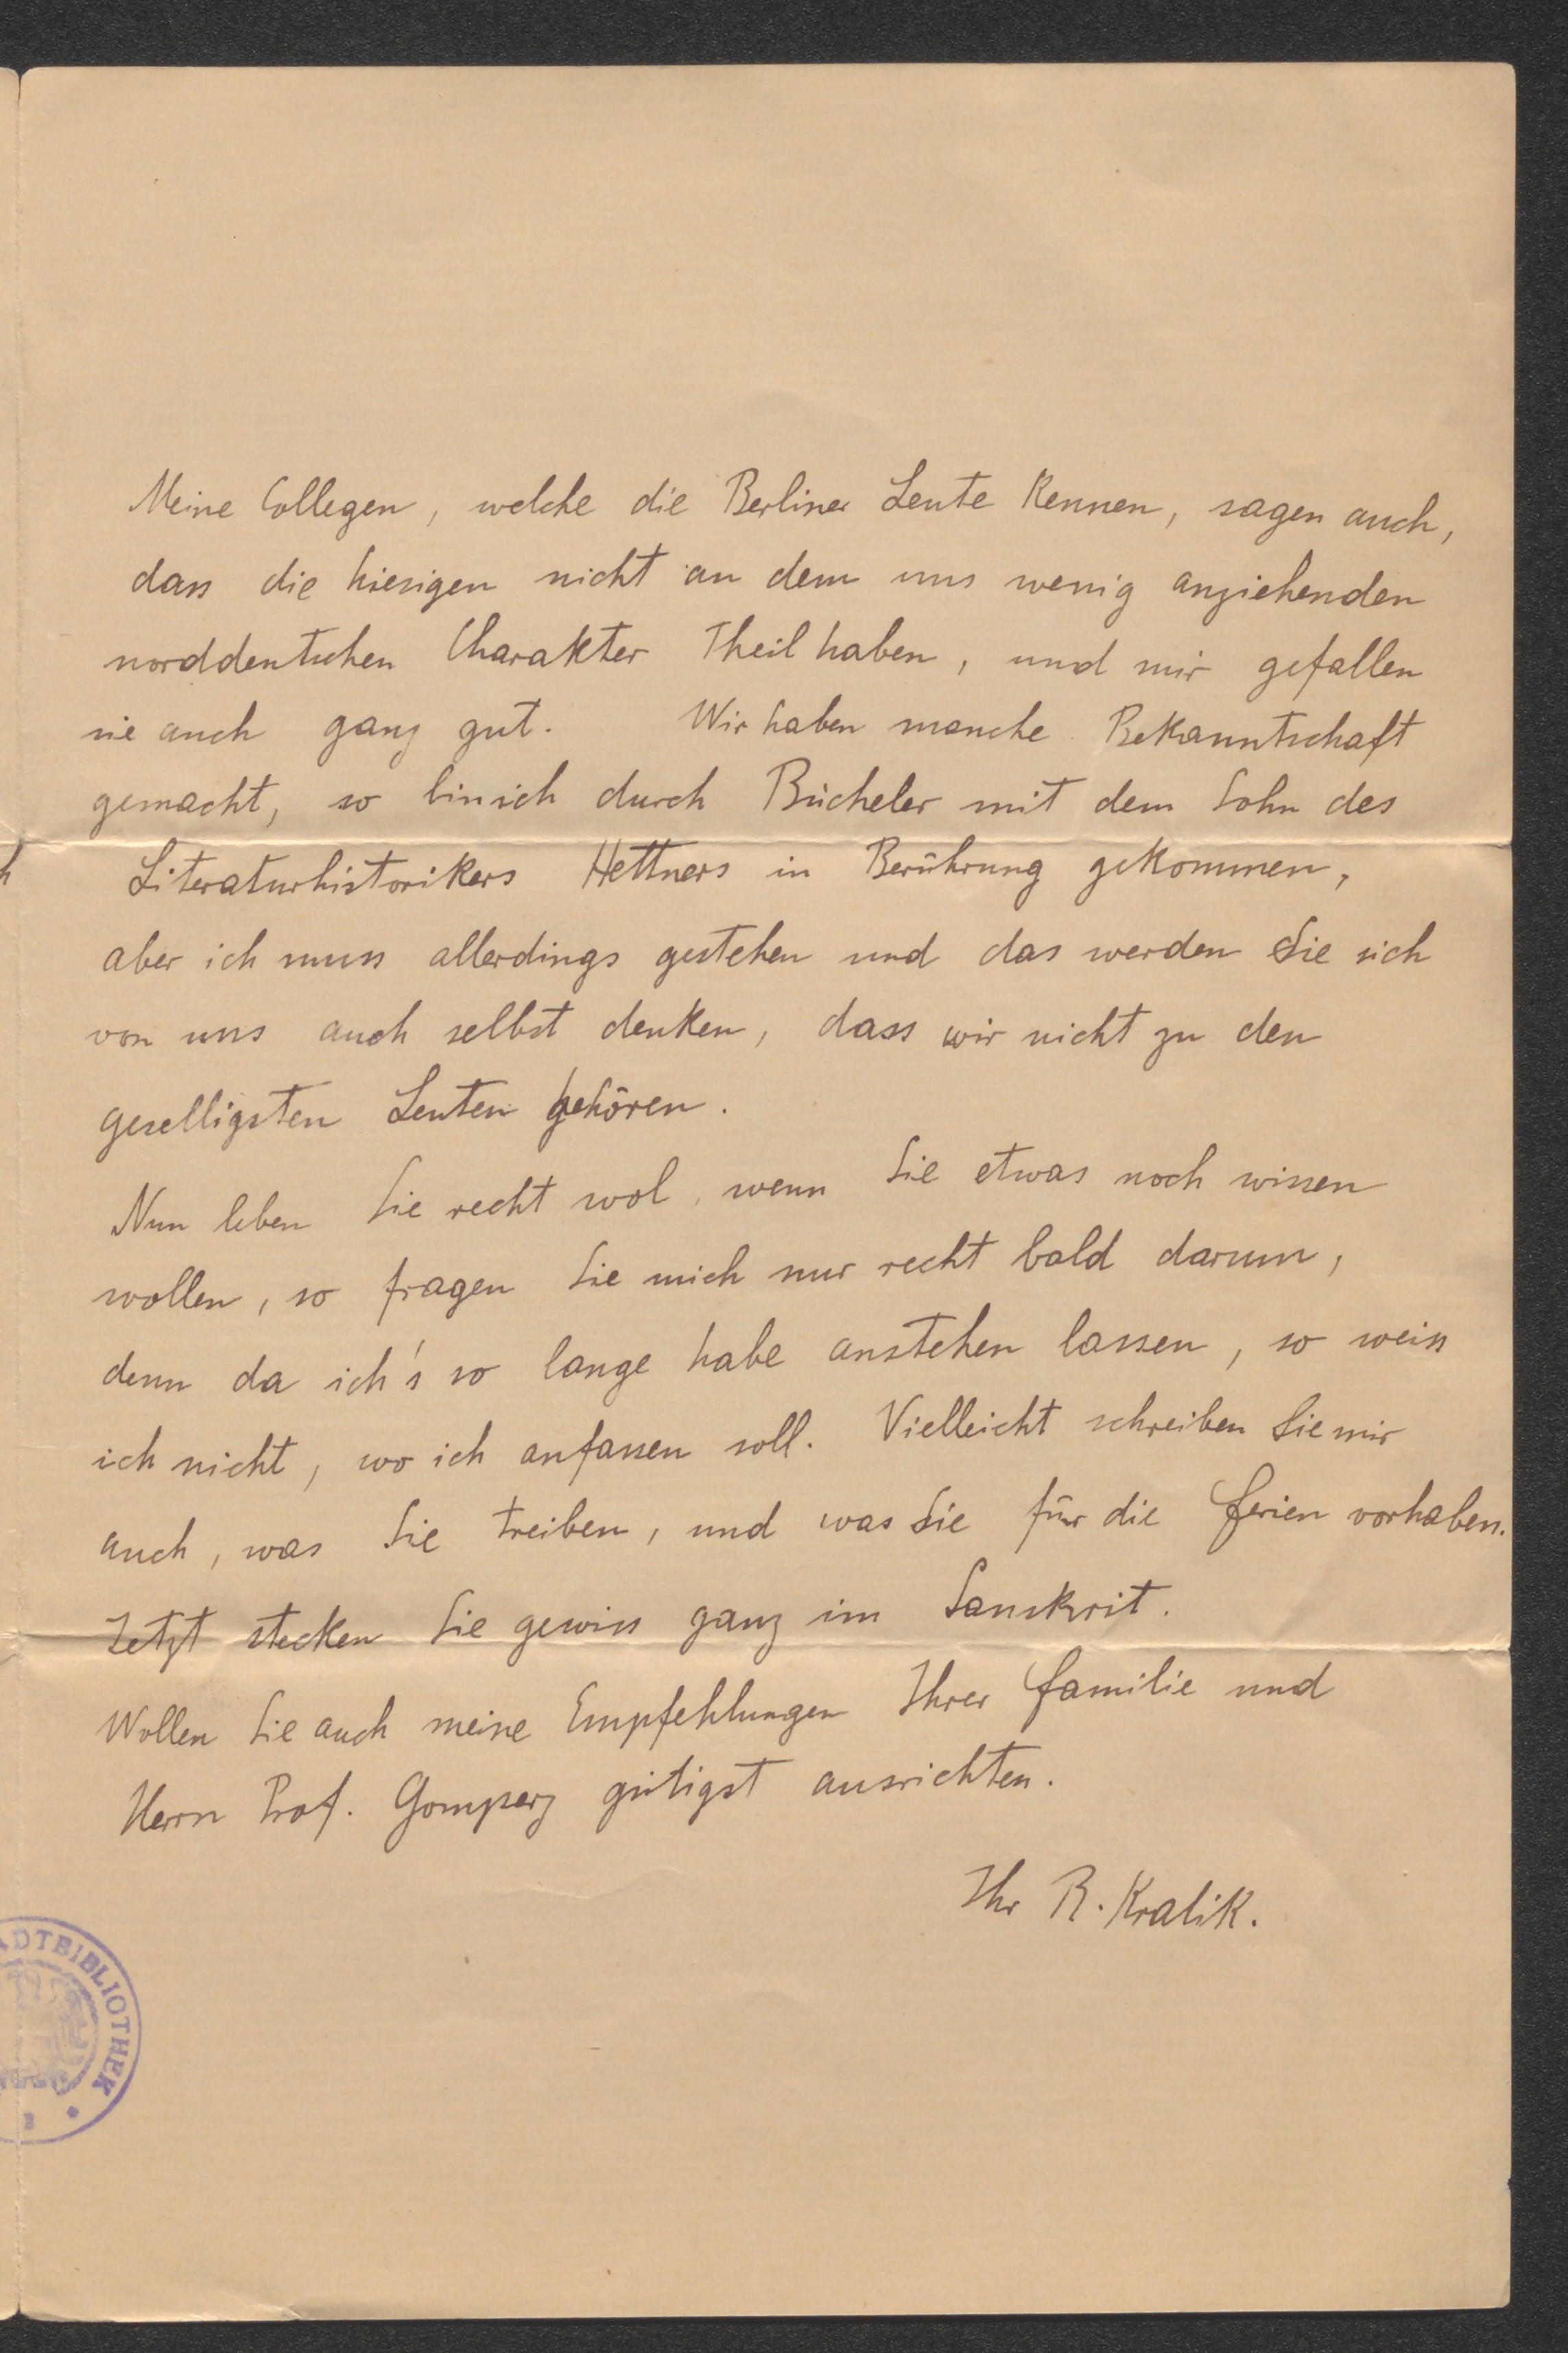 Meine Collegen, welche die Berliner Leute kennen, sagen auch,
dass die hiesigen nicht an dem uns wenig anziehenden
norddeutschen Charakter Theil haben, und mir gefallen
sie auch ganz gut. Wir haben manche Bekanntschaft
gemacht, so bin ich durch Bücheler mit dem Sohn des
Literaturhistorikers Hettners in Berührung gekommen,
aber ich muss allerdings gestehen und das werden Sie sich
von uns auch selbst denken, dass wir nicht zu den
geselligsten Leuten gehören.
Nun leben Sie recht wol, wenn Sie etwas noch wissen
wollen, so fragen Sie mich nur recht bald darum,
denn da ich's so lange habe anstehen lassen, so weiss
ich nicht, wo ich anfassen soll. Vielleicht schreiben Sie mir
auch, was Sie treiben, und was Sie für die Ferien vorhaben.
Jetzt stecken Sie gewiss ganz im Sanskrit.
Wollen Sie auch meine Empfehlungen Ihrer Familie und
Herrn Prof. Gomperz gütigst ausrichten.
Ihr R. Kralik.
ADTBIBLIOTHEK